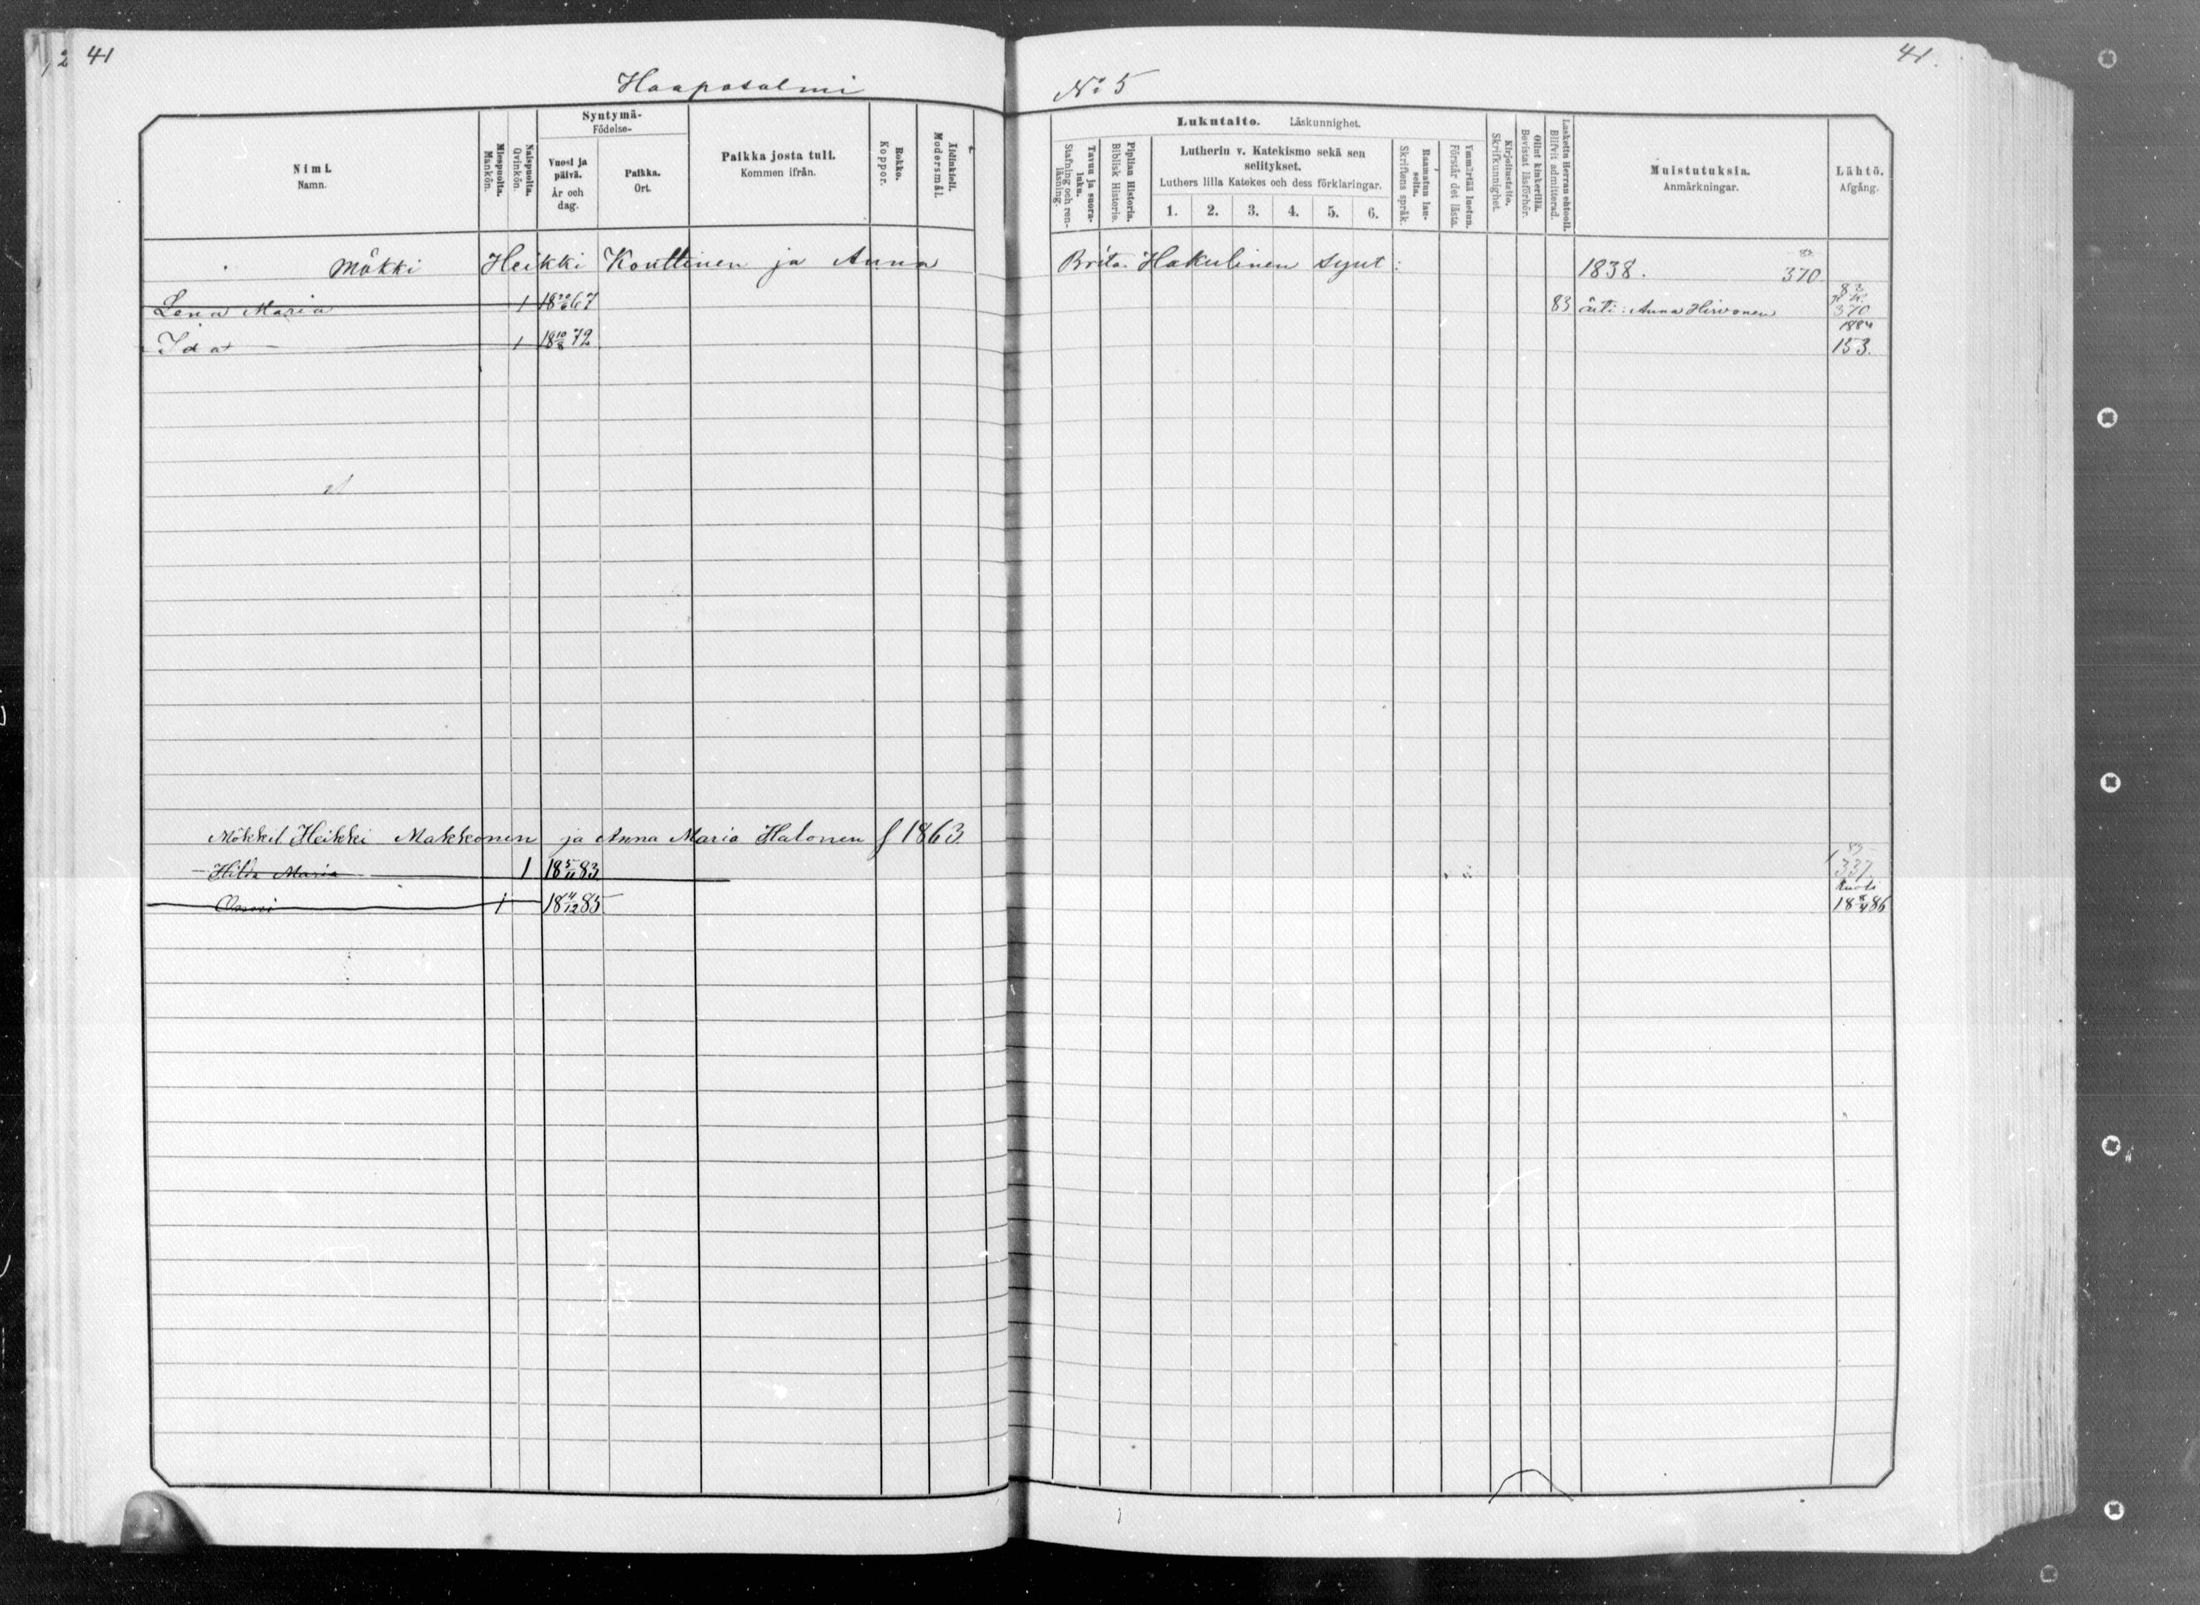 41
41.
Haaposalmi No 5
Nimi.
Namn.
Miespuolta.
Mankön.
Naispuolta.
Qvinkön.
Syntymä-
Födelse-
Vuosi ja päivä.
År och dag.
Paikka.
Ort.
Paikka josta tuli.
Kommen ifrån.
Rokko.
Koppor.
Äidinkieli.
Modersmål.
Lukutaito. Läskunnighet.
Tavuu ja suora-luku.
Stafning och ren-läsning.
Piplian Historia.
Biblisk Historie.
Lutherin v. Katekismo sekä sen selitykset.
Luthers lilla Katekes och dess förklaringar.
1. 2. 3. 4. 5. 6.
Raamatun lau-seita.
Skriftens språk.
Ymmärtää luetun.
Förstår det lästa.
Kirjoitustaito.
Skrifkunnighet.
Ollut kinkerillä.
Bevistat läsförhör.
Laskettu Herran ehtoolli.
Blifvit admitterad.
Muistutuksia.
Anmärkningar.
Lähtö.
Afgång.
Mökki Heikki Konttinen ja Anna Brita Hakulinen synt: 1838. 370
Lena Maria 1 18 67 83 äiti: Anna Hirvonen 83 370
Ida 1 18 10/8 72 1884 153.
Mökkil Heikki Makkonen ja Anna Maria Halonen f 1863
Hilda Maria 1 18 5/11 83 337
1 18 /12 85 Kuoli 18 86